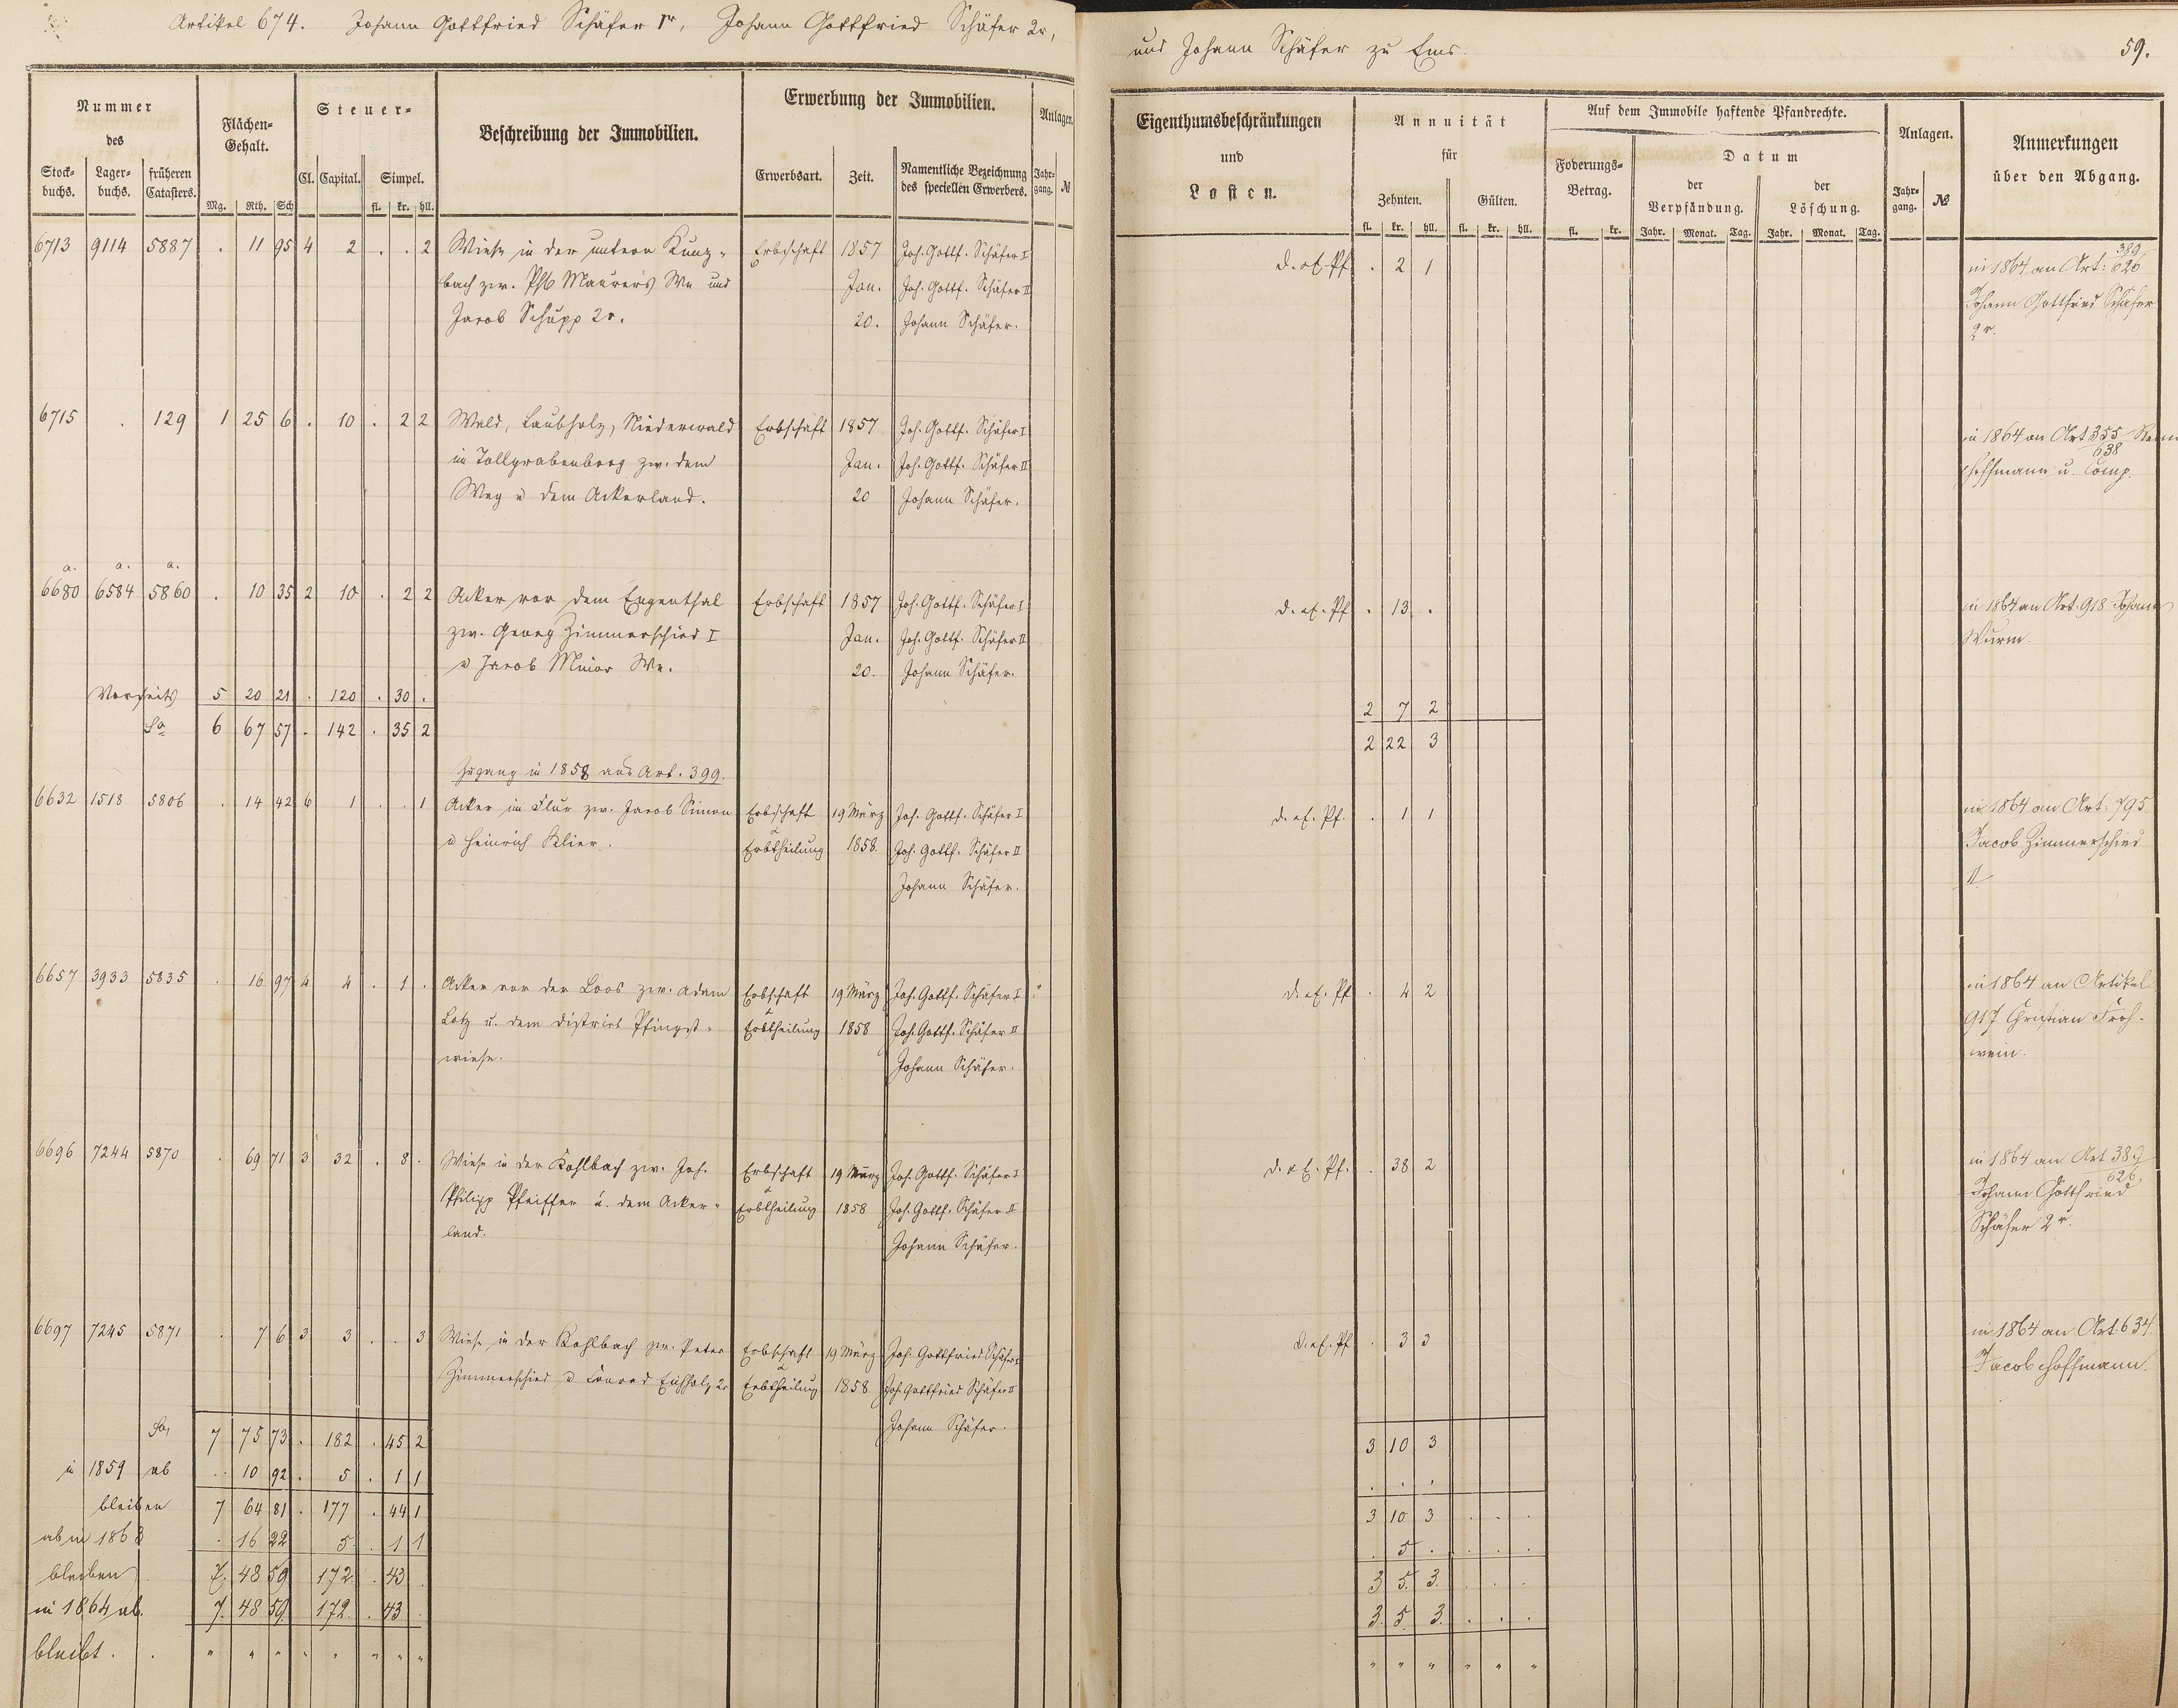 Artikel 674. Johann Gottfried Schäfer 1r, Johann Gottfried Schäfer 2r,
und Johann Schäfer zu Ems.
59.
Nummer
des
Stock-buchs. Lager-buchs. früheren Catasters.
Flächen-Gehalt.
Mg. Rth. Sch
Steuer-
Cl. Capital. Simpel.
fl. kr. hll.
Beschreibung der Immobilien.
Erwerbung der Immobilien.
Erwerbsart. Zeit. Namentliche Bezeichnung des speciellen Erwerbers.
Anlagen.
Jahr-gang. №
Eigenthumsbeschränkungen
und
Lasten.
Annuität
für
Zehnten. Gülten.
fl. kr. hll. fl. kr. hll.
Auf dem Immobile haftende Pfandrechte.
Foderungs-Betrag.
fl. kr.
Datum
der Verpfändung. der Löschung.
Jahr. Monat. Tag. Jahr. Monat. Tag.
Anlagen.
Jahr-gang. №
Anmerkungen
über den Abgang.
6713 9114 5887 . 11 95 4 2 . . 2 Wiese in der untern Kunz- Erbschaft 1857 Joh. Gottf. Schäfer I d. & E. Pf. . 2 1 in 1864 an Art: 389/626
bach zw. Phlb Maurer's We und Jan. Joh. Gottf. Schäfer II Johann Gottfried Schäfer
Jacob Schupp 2r. 20. Johann Schäfer. 2r.
6715 . 129 1 25 6 . 10 . 2 2 Wald, Laubholz, Niederwald Erbschaft 1857 Joh. Gottf. Schäfer I in 1864 an Art 355/638
im Tollgrabenberg zw. dem Jan. Joh. Gottf. Schäfer II Hoffmann u. Comp.
Weg u dem Ackerland. 20 Johann Schäfer.
a. a. a.
6680 6584 5860 . 10 35 2 10 . 2 2 Acker vor dem Engenthal Erbschaft 1857 Joh. Gottf. Schäfer I d. & E. Pf . 13 . in 1864 an Art. 918 Johann
zw. Georg Zimmerschied I Jan. Joh. Gottf. Schäfer II Wurm.
u Jacob Minor We. 20. Johann Schäfer.
Vorseits 5 20 21 . 120 . 30 . 2 7 2
Sa 6 67 57 . 142 . 35 2 2 22 3
Zugang in 1858 aus Art. 399.
6632 1518 5806 . 14 42 6 1 . . 1 Acker im Flur zw. Jacob Simon Erbschaft 19 März Joh. Gottf. Schäfer I d. & E. Pf. . 1 1 in 1864 an Art: 795
u Heinrich Klier. & Erbtheilung 1858. Joh. Gottf. Schäfer II Jacob Zimmerschied
Johann Schäfer. II
6657 3933 5835 . 16 97 4 4 . 1 . Acker vor der Loos zw. Adam Erbschaft 19 März Joh. Gottf. Schäfer I d. & E. Pf . 4 2 in 1864 an Artikel
Lotz u. dem District Pfingst- & Erbtheilung 1858 Joh. Gottf. Schäfer II 917 Christian Froh-
wiese. Johann Schäfer. wein.
6696 7244 5870 . 69 71 3 32 . 8 . Wiese in der Kohlbach zw. Joh. Erbschaft 19 März Joh. Gottf. Schäfer I d. & E. Pf. . 38 2 in 1864 an Art 389/626
Philipp Pfeiffer u. dem Acker- & Erbtheilung 1858 Joh. Gottf. Schäfer II Johann Gottfried
land. Johann Schäfer. Schäfer 2r.
6697 7245 5871 . 7 6 3 3 . . 3 Wiese in der Kohlbach zw. Peter Erbschaft 19 März Joh. Gottfried Schäfer I d. & E. Pf . 3 3 in 1864 an Art: 634
Zimmerschied u Conrad Eichholz 2r & Erbtheilung 1858 Joh. Gottfried Schäfer II Jacob Hoffmann.
Johann Schäfer.
Sa 7 75 73 . 182 . 45 2 3 10 3
in 1859 ab . 10 92 . 5 . 1 1 . . .
bleiben 7 64 81 . 177 . 44 1 3 10 3 . . .
ab in 1863 . 16 22 5. . 1 1 . 5 . . . .
bleiben 7. 48 59 172. . 43 . 3 5. 3. . . .
in 1864 ab. 7. 48 59. 172. . 43 . 3. 5 3. . . .
bleibt . . " " " " " " " " " " " " " "